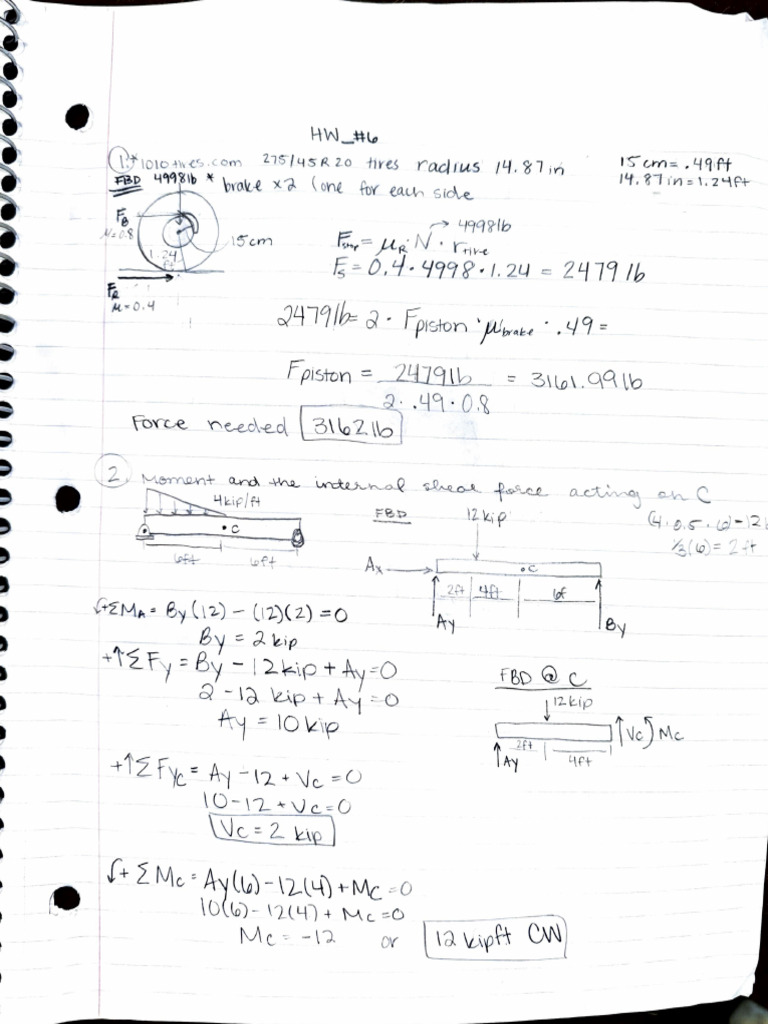 HW_#6
1.* 1010tires.com 275/45R20 tires radius 14.87in
15cm = .49ft
14.87in = 1.24ft
FBD 4998lb * brake x2 (one for each side
FB
μ=0.8
15cm
1.24
ft
FR
μ=0.4
→ 4998lb
= μR · N · rtire
Fs = 0.4 · 4998 · 1.24 = 2479 lb
2479lb = 2 · Fpiston · μbrake · .49 =
Fpiston = 2479lb = 3161.99lb
2 · .49 · 0.8
Force needed 3162lb
2. Moment and the internal shear force acting on C
4kip/ft
• C
6ft 6ft
FBD 12kip
(4 · 0.5 · 6) = 12
1/3(6) = 2ft
Ax •C
2ft 4ft 6f
Ay By
↓+ΣMA = By(12) - (12)(2) = 0
By = 2 kip
+↑ΣFy = By - 12kip + Ay = 0
2 - 12 kip + Ay = 0
Ay = 10 kip
FBD @ C
12kip
Vc Mc
2ft 4ft
Ay
+↑ΣFyc = Ay - 12 + Vc = 0
10 - 12 + Vc = 0
Vc = 2 kip
↓+ ΣMc = Ay(6) - 12(4) + Mc = 0
10(6) - 12(4) + Mc = 0
Mc = -12 or 12 kipft CW